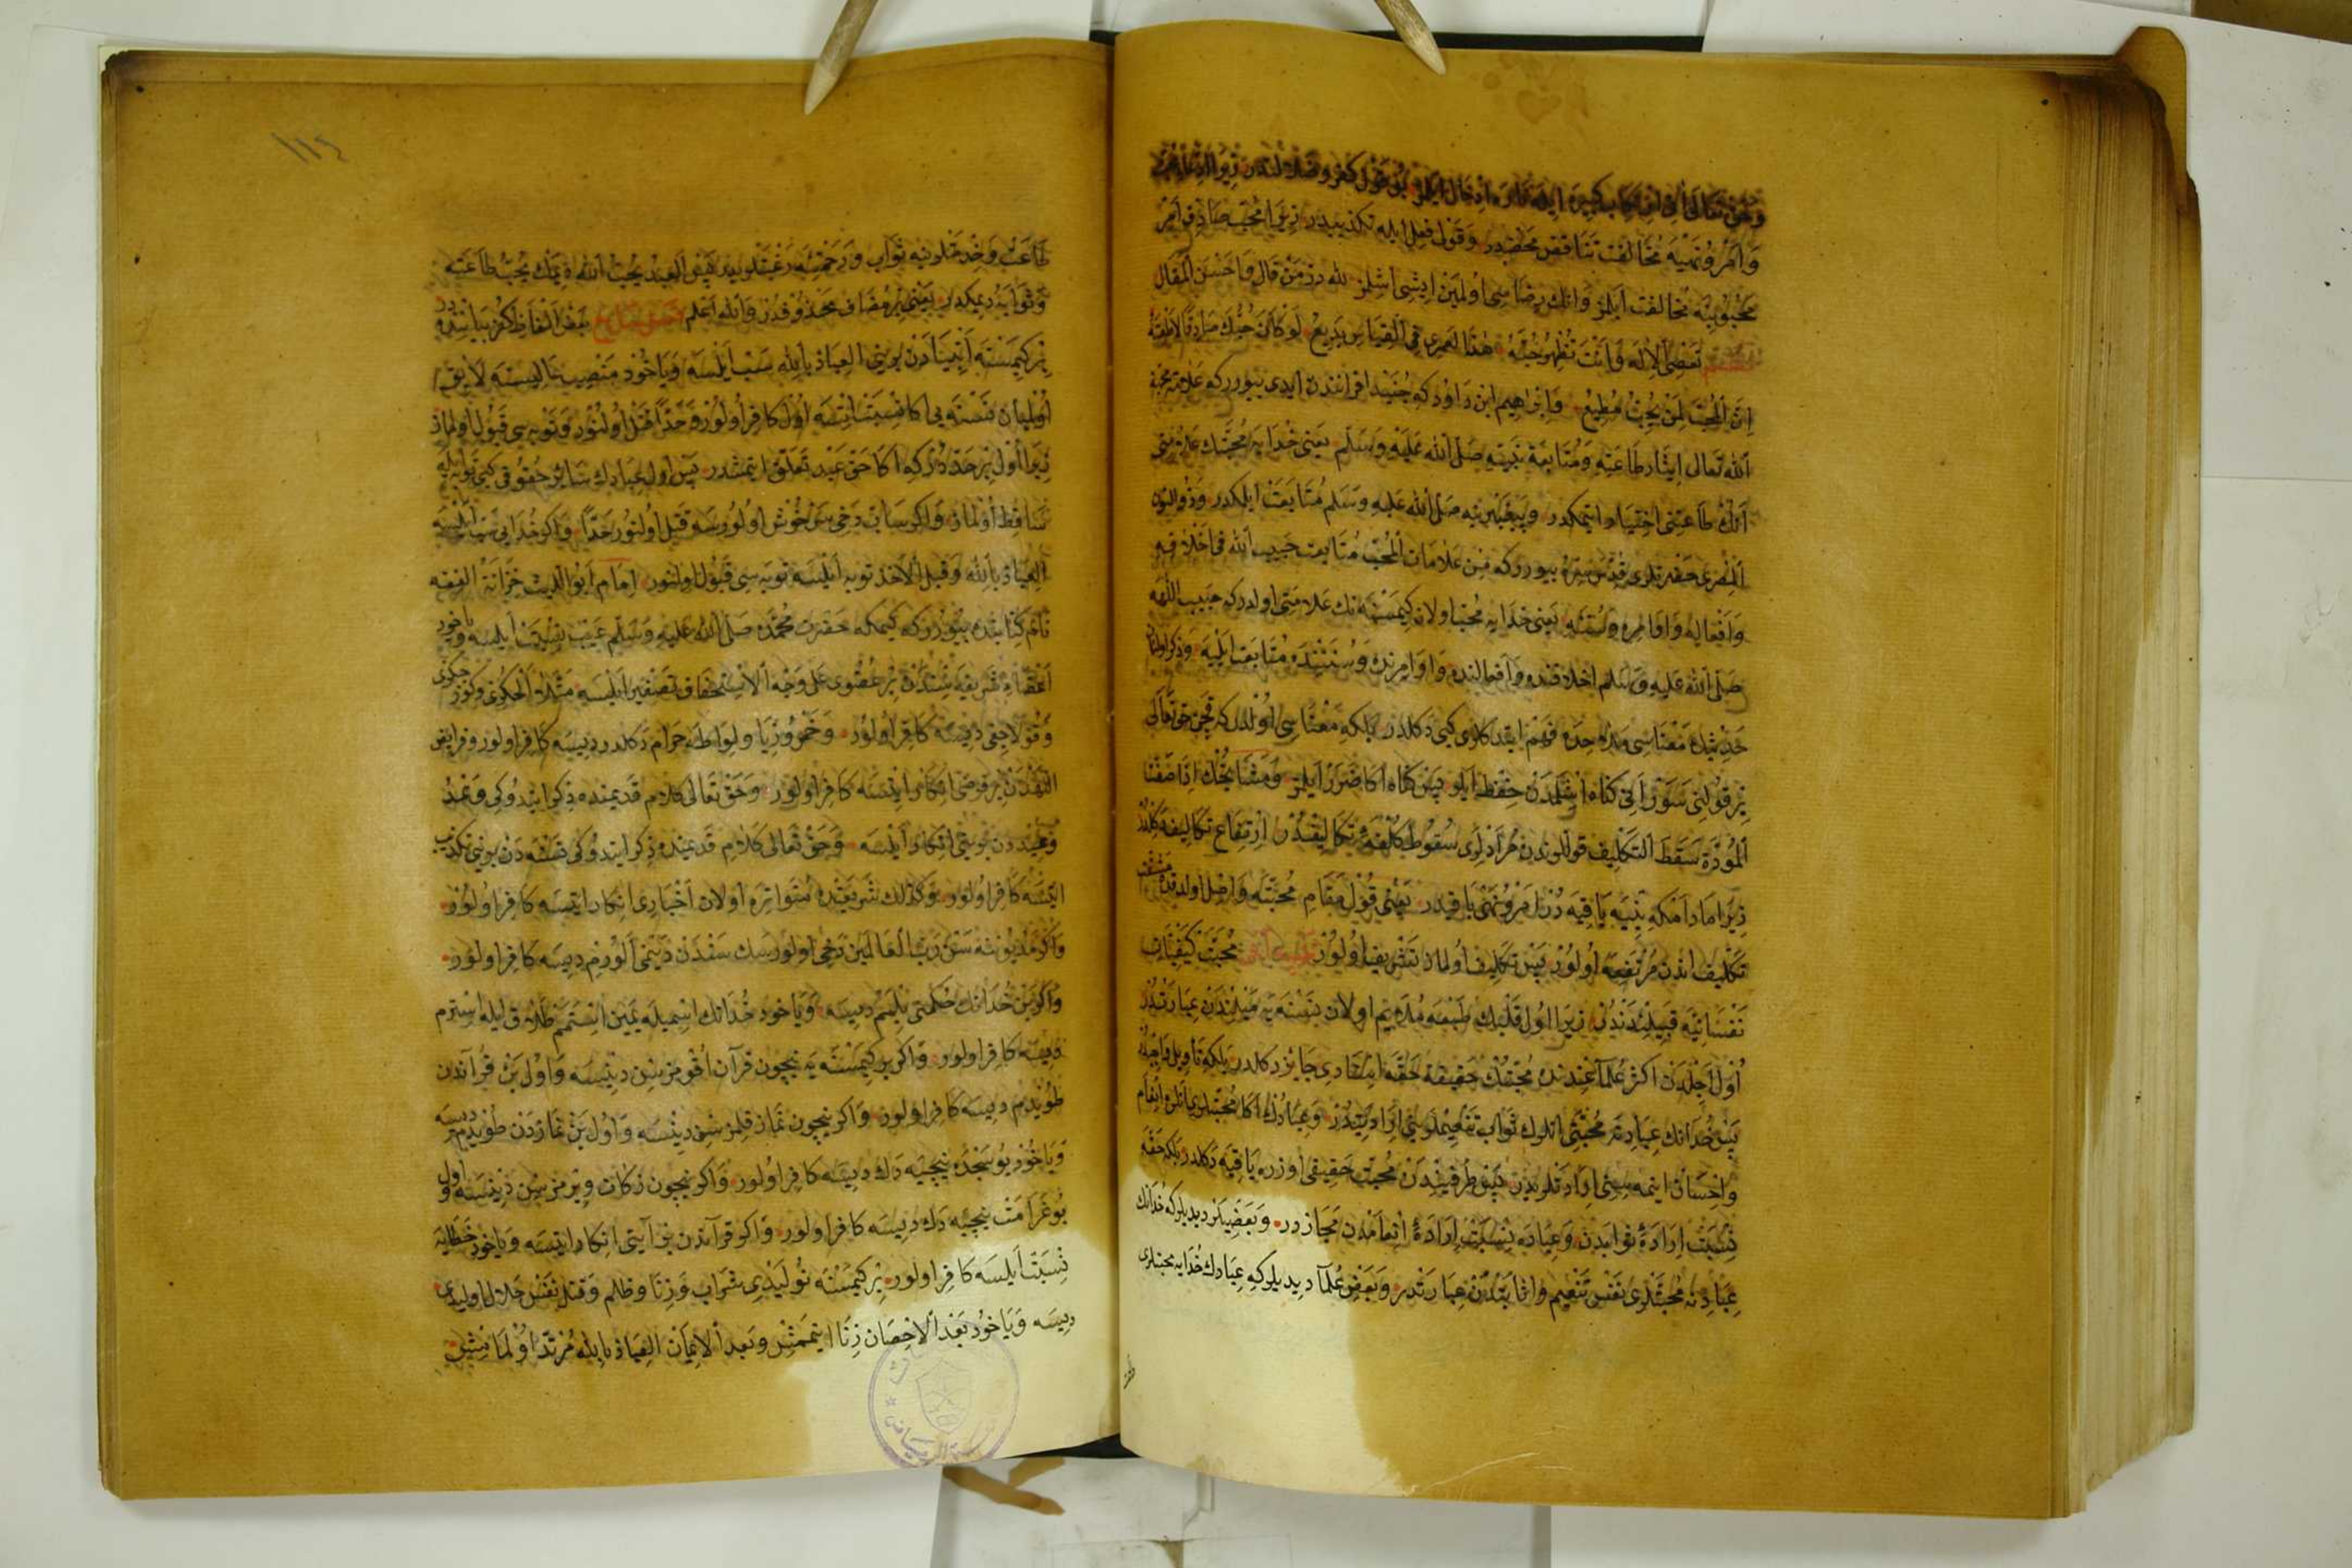 و حق تعالى انى ارتكاب كبيره ايله ناره ادخال ايلمز بو قول كفر و ضلالتدر زيرا
و امر و نهيه مخالفت تناقض محضدر و قول فعل ايله تكذيبدر زيرا محب صادق امر
محبوبنه مخالفت ايلمز و انك رضاسى اولمين ايشى اشلمز لله در من قال و احسن المقال
تعصى الاله و انت تظهر حبه هذا لعمرى فى القياس بديع لو كان حبك صادقا لاطعته
ان المحب لمن يحب مطيع و ابراهيم ابن داود كه جنيد اقرانندن ايدى بيورر كه علامة محبة
الله تعالى ايثار طاعته و متابعة نبيه صلى الله عليه و سلم يعنى خدايه محبتك علامتى
انك طاعتنى اختيار ايتمكدر و پيغمبرينه صلى الله عليه و سلم متابعت ايلمكدر و ذو النون
المصرى حضرتلرى قدس سره بيورر كه من علامات المحب متابعت حبيب الله فى اخلاقه
و افعاله و اوامره و سننه يعنى خدايه محب اولان كيمسنه نك علامتى اولدر كه حبيب اللهه
صلى الله عليه و سلم اخلاقنده و افعالنده و اوامرنده و سنننده متابعت ايليه و ذكر اولنان
حديثك معناسى ملاحده فهم ايتدكلرى كبى دكلدر بلكه معناسى اولدر كه قچن حق تعالى
بر قولنى سوز انى كناه اشلمدن حفظ ايلر پس كناه اكا ضرر ايلمز و مشايخك اذا صفت
المودة سقط التكليف قوللرندن مرادلرى سقوط كلفة تكاليفدر ارتفاع تكاليف دكلدر
زيرا مادامكه بنيه باقيه در امر و نهى باقيدر يعنى قول مقام محبته واصل اولدقده مشقت
تكليف اندن مرتفعه اولور پس تكليف اولماز تشريف اولور محبت كيفيات
نفسانيه قبيلندندر زيرا اول قلبك طبعه ملايم اولان نسنه يه ميلندن عبارتدر
اول اجلدن اكثر علما عندنده محبتك حقيقة حقه اسنادى جائز دكلدر بلكه تأويل واجبدر
پس خدانك عباده محبتى انلرك ثواب تفخيملرينى ارادتيدر و عبادك اكا محبتلرى انلره انعام
و احسان ايتمه سنى ارادتلريدر پس طرفيندن محبت حقيقى اوزره باقيه دكلدر بلكه حقه
نسبت ارادة ثوابدن و عباده نسبت ارادة انعامدن مجازدر و بعضيلر ديديلر كه خدانك
عبادنه محبتلرى نفس تنعيم و اثابتدن عبارتدر و بعض علما ديديلر كه عبادك خدايه محبتلرى
١١٤
طاعت و خدمتلرينه ثواب و رحمتنه رغبتلريدر پس العبد يحب الله ديمك يحب طاعته
و ثوابه ديمكدر يعنى بر مضاف محذوفدر و الله اعلم بعض الفاظ كفر بياننده در
بر كيمسنه انبيادن بريني العياذ بالله سب ايلسه و ياخود منصب عاليسنه لايق
اولميان نسنه يى اكا نسبت ايتسه اول كافر اولور و حدا قتل اولنور و توبه سى قبول اولماز
زيرا اول بر حددر كه اكا حق عبد تعلق ايتمشدر پس اول عبادك سائر حقوقى كبى توبه ايله
ساقط اولماز و اكر ساب دخى سرخوش اولورسه قتل اولنور حدا و اكر خدايى سب ايلسه
العياذ بالله و قبل الاخذ توبه ايلسه توبه سى قبول اولنور امام ابو الليث خزانة الفقه
نام كتابنده بيورر كه كيمكه حضرت محمده صلى الله عليه و سلم عيب نسبت ايلسه و ياخود
اعضاء شريفه سندن بر عضوى على وجه الاستخفاف تصغير ايلسه مثلا الجكزى و كوزجكزى
و قولاجقى ديسه كافر اولور و خمر و زنا و لواطه حرام دكلدر ديسه كافر اولور و فرايض
اللهدن بر فرضى انكار ايتسه كافر اولور و حق تعالى كلام قديمنده ذكر ايتدوكى وعد
و عيددن بريني انكار ايلسه و حق تعالى كلام قديمنده ذكر ايتدوكى قصه دن بريني تكذيب
ايتسه كافر اولور و كذلك شريعتده متواتره اولان اخبارى انكار ايتسه كافر اولور
و اكر مديوننه سن رب العالمين دخى اولورسك سندن دينمى الورم ديسه كافر اولور
و اكر بن خدانك حكمتى بلمم ديسه و ياخود خدانك اسميله يمين استمم طلاق ايله استرم
ديسه كافر اولور و اكر بر كيمسنه يه نيچون قرآن اوقومزسن دينسه و اول بن قرآندن
طويدم ديسه كافر اولور و اكر نيچون نماز قلمزسن دينسه و اول بن نمازدن طويدم ديسه
و ياخود بو سجده نيچيه دك ديسه كافر اولور و اكر نيچون زكات ويرمزسن دينسه و اول
بو غرامت نيچيه دك ديسه كافر اولور و اكر قرآندن بر آيتى انكار ايتسه و ياخود خطايه
نسبت ايلسه كافر اولور بر كيمسنه نوليدى شراب و زنا و ظلم و قتل نفس حلال اوليدى
ديسه و ياخود بعد الاحصان زنا ايتمشن و بعد الايمان العياذ بالله مرتد اولمامشن